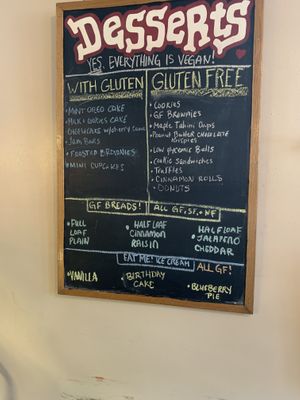 DESSERTS
YES, EVERYTHING IS VEGAN!
WITH GLUTEN
• MINT OREO CAKE
CAKE
CHEESECAKE w/cherry
• Jam Bars
• FROSTED BROWNIES
• MINI CUPCAKES
GLUTEN FREE
• COOKIES
• GF BROWNIES
• Maple Tahini Cups
• Peanut Butter CHOCOLATE
Krispies
• LOW Glycemic Balls
• Cookie Sandwiches
• Truffles
• CINNAMON ROLLS
• DONUTS
GF BREADS!
ALL GF, SF, + NF
• FULL
LOAF
PLAIN
• HALF LOAF
CINNAMON
RAISIN
HALF LOAF
• JALAPENO
CHEDDAR
EAT ME! ICE CREAM
ALL GF!
• VANILLA
• BIRTHDAY
CAKE
• BLUEBERRY
PIE